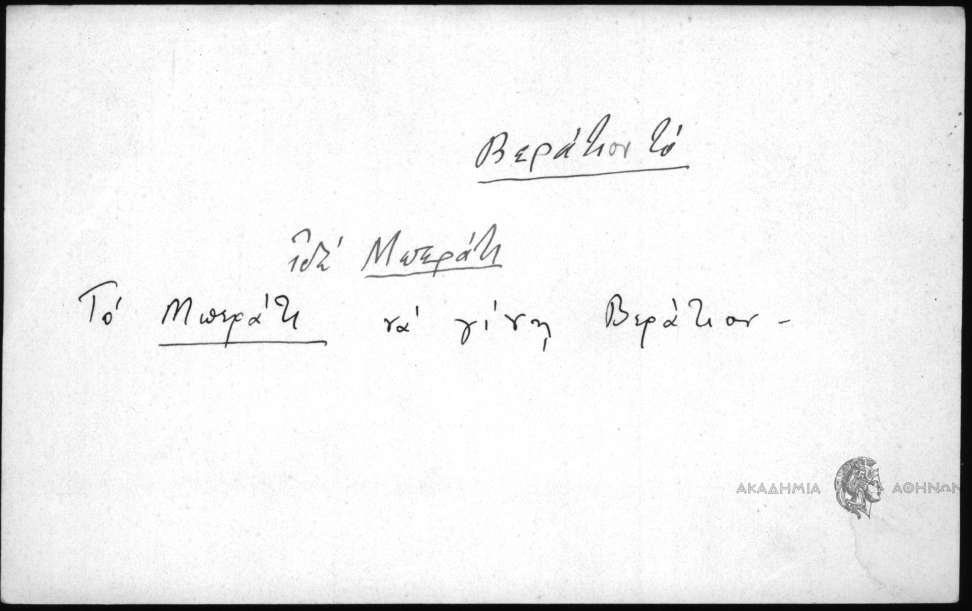 Βεράτιον τό
ἰδέ Μπεράτι
Τό Μπεράτι νά γίνῃ Βεράτιον -
ΑΚΑΔΗΜΙΑ ΑΘΗΝΩΝ